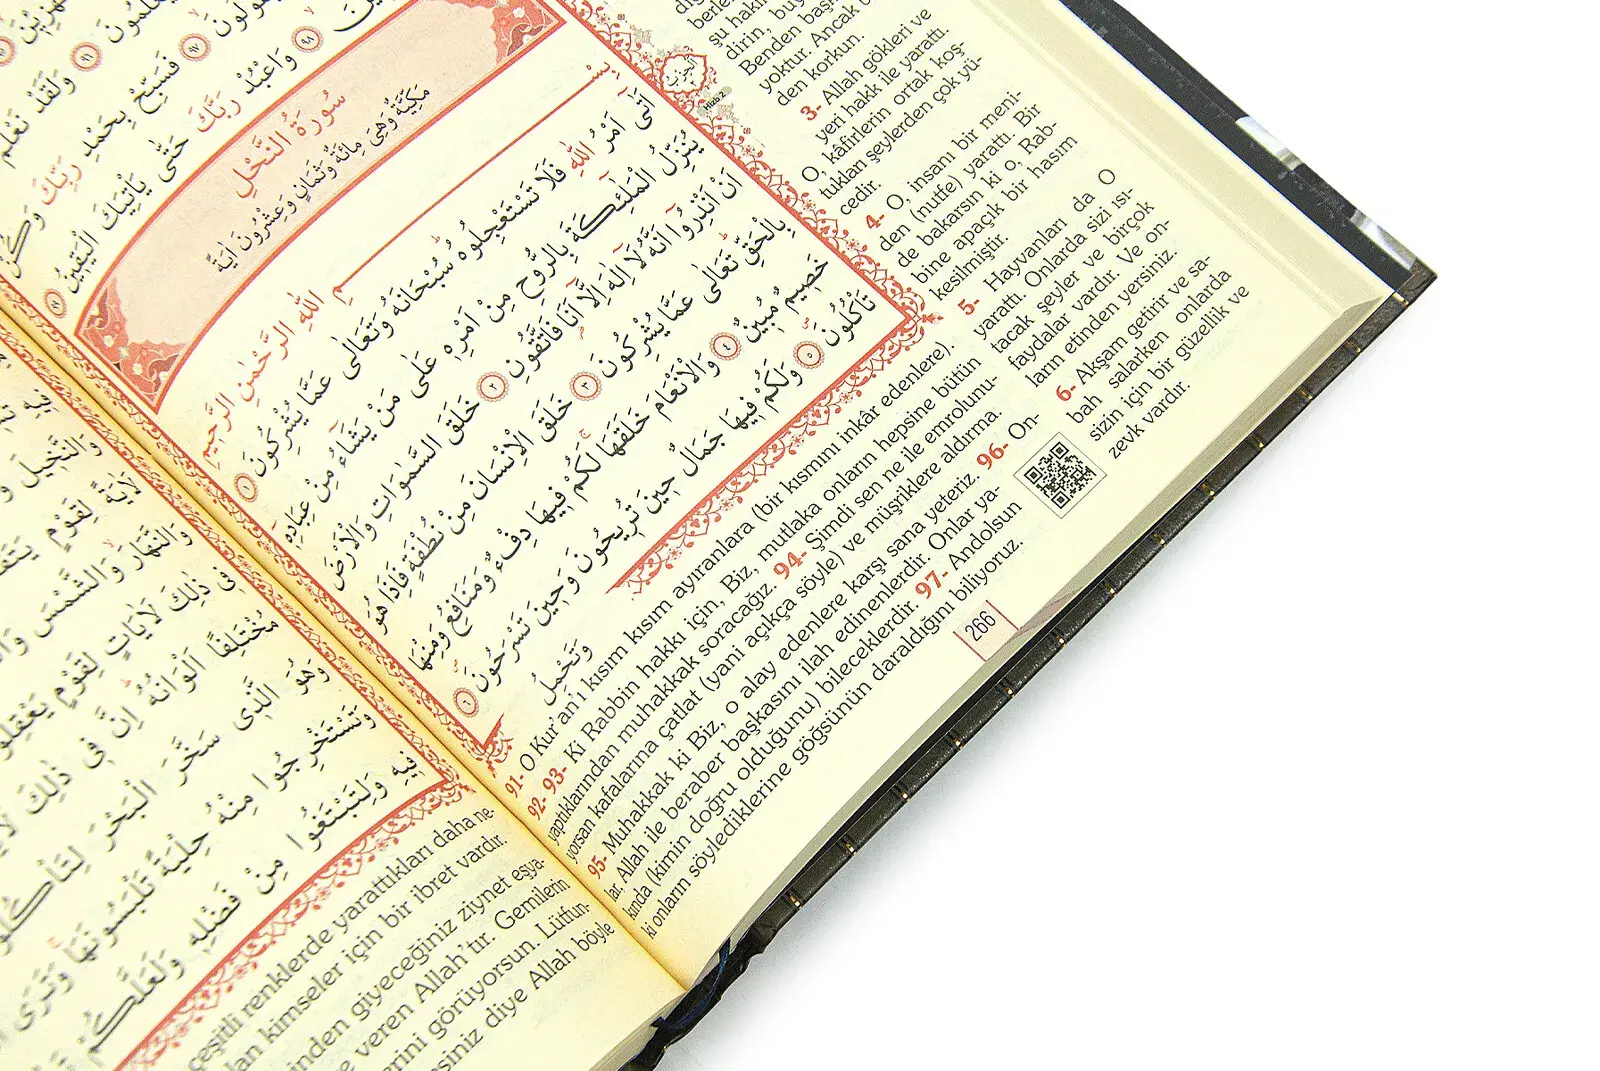 وَلَقَدْ نَعْلَمُ
فَسَبِّحْ بِحَمْدِ رَبِّكَ
وَاعْبُدْ رَبَّكَ حَتّٰى يَأْتِيَكَ الْيَقِينُ ٩٩
سُورَةُ النَّحْلِ
مَكِّيَّةٌ وَهِىَ مِائَةٌ وَثَمَانٍ وَعِشْرُونَ اٰيَةً
الحزب
Hizb 2
بِسْمِ اللّٰهِ الرَّحْمٰنِ الرَّحِيمِ
اَتٰٓى اَمْرُ اللّٰهِ فَلَا تَسْتَعْجِلُوهُ سُبْحَانَهُ وَتَعَالٰى عَمَّا يُشْرِكُونَ ١
يُنَزِّلُ الْمَلٰٓئِكَةَ بِالرُّوحِ مِنْ اَمْرِهٖ عَلٰى مَنْ يَشَٓاءُ مِنْ عِبَادِهٖٓ
اَنْ اَنْذِرُٓوا اَنَّهُ لَٓا اِلٰهَ اِلَّٓا اَنَا۬ فَاتَّقُونِ ٢ خَلَقَ السَّمٰوَاتِ وَالْاَرْضَ
بِالْحَقِّ تَعَالٰى عَمَّا يُشْرِكُونَ ٣ خَلَقَ الْاِنْسَانَ مِنْ نُطْفَةٍ فَاِذَا هُوَ
خَصِيمٌ مُبِينٌ ٤ وَالْاَنْعَامَ خَلَقَهَا لَكُمْ فِيهَا دِفْءٌ وَمَنَافِعُ وَمِنْهَا
تَأْكُلُونَ ٥ وَلَكُمْ فِيهَا جَمَالٌ حِينَ تُرِيحُونَ وَحِينَ تَسْرَحُونَ ٦
وَتَحْمِلُ
Benden başka
yoktur. Ancak
den korkun.
3- Allah gökleri ve
yeri hakk ile yarattı.
O, kâfirlerin ortak koş-
tukları şeylerden çok yü-
cedir.
4- O, insanı bir meni-
den (nutfe) yarattı. Bir
de bakarsın ki o, Rab-
bine apaçık bir hasım
kesilmiştir.
5- Hayvanları da O
yarattı. Onlarda sizi ısı-
tacak şeyler ve birçok
faydalar vardır. Ve on-
ların etinden yersiniz.
6- Akşam getirir ve sa-
bah salarken onlarda
sizin için bir güzellik ve
zevk vardır.
91- O Kur'an'ı kısım kısım ayıranlara (bir kısmını inkâr edenlere).
92- 93- Ki Rabbin hakkı için, Biz, mutlaka onların hepsine bütün
yaptıklarından muhakkak soracağız. 94- Şimdi sen ne ile emrolunu-
yorsan kafalarına çatlat (yani açıkça söyle) ve müşriklere aldırma.
95- Muhakkak ki Biz, o alay edenlere karşı sana yeteriz. 96- On-
lar, Allah ile beraber başkasını ilah edinenlerdir. Onlar ya-
kında (kimin doğru olduğunu) bileceklerdir. 97- Andolsun
ki onların söylediklerine göğsünün daraldığını biliyoruz.
266
لَاٰيَةً لِقَوْمٍ
وَالنَّهَارَ وَالشَّمْسَ
فِى ذٰلِكَ لَاٰيَاتٍ لِقَوْمٍ يَعْقِلُونَ
مُخْتَلِفًا اَلْوَانُهُ اِنَّ فِى ذٰلِكَ
وَهُوَ الَّذِى سَخَّرَ الْبَحْرَ لِتَأْكُلُوا
وَتَسْتَخْرِجُوا مِنْهُ حِلْيَةً تَلْبَسُونَهَا وَتَرَى
فِيهِ وَلِتَبْتَغُوا مِنْ فَضْلِهٖ وَلَعَلَّكُمْ
çeşitli renklerde yarattıkları daha ne-
kimseler için bir ibret vardır.
inden giyeceğiniz ziynet eşya-
veren Allah'tır. Gemilerin
görüyorsun. Lütfun-
siniz diye Allah böyle